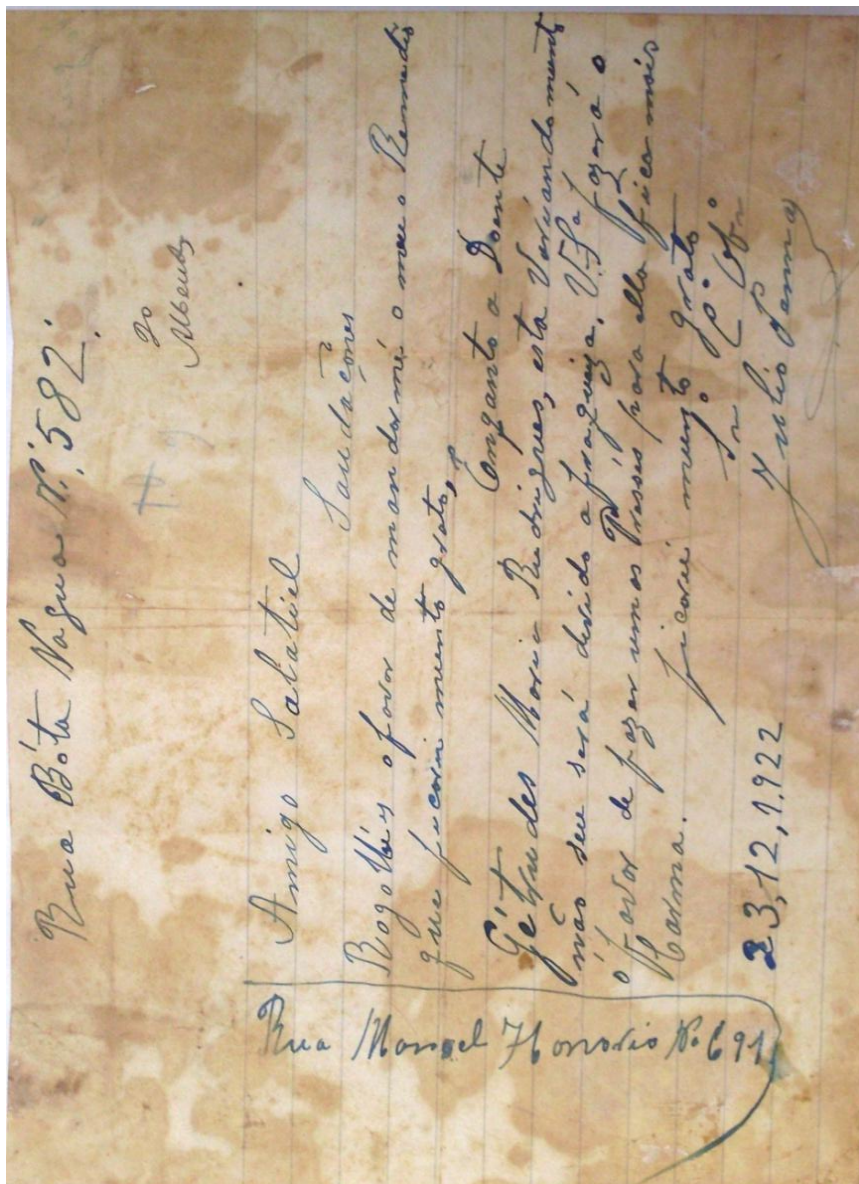 Rua Bóta Nagua N. 582.
Do
Amigo Salatiel
Saudacões
Rogo lhis o favor de mandar mé o meu Remedio
que ficarei muento grato,
Enquanto a Doente
Gétrudes Maria Rudrigues, esta Variando muent
não seu será divido a fraqueiza, V.Sª fazerá o
o favor de fazer umas presses para ella ficar mais
Carma. ficarei muento grato
Julio Penna
23,12,1.922
Rua Manoel Honorio No 691